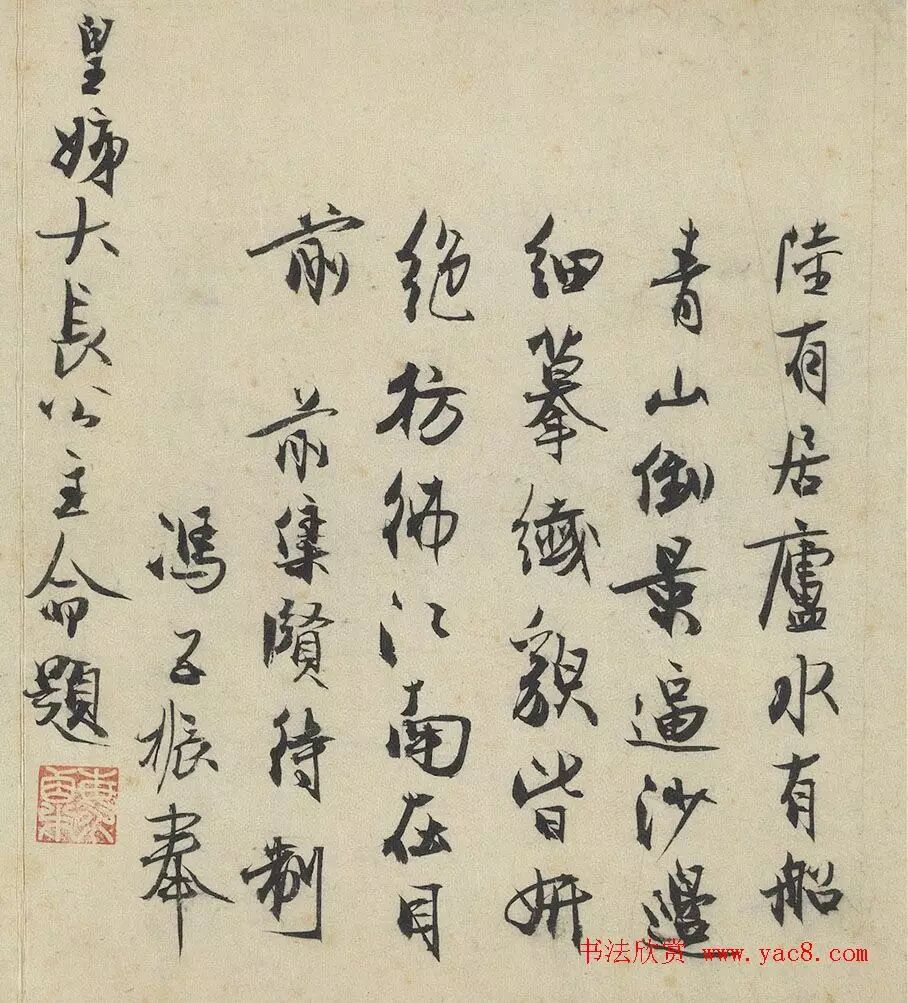 陸有居廬水有船
青山倒景逼沙邊
細摹纖貌皆妍
絕彷彿江南在目
前　前集賢待制
馮子振奉
皇姊大長公主命題
书法欣赏 www.yac8.com